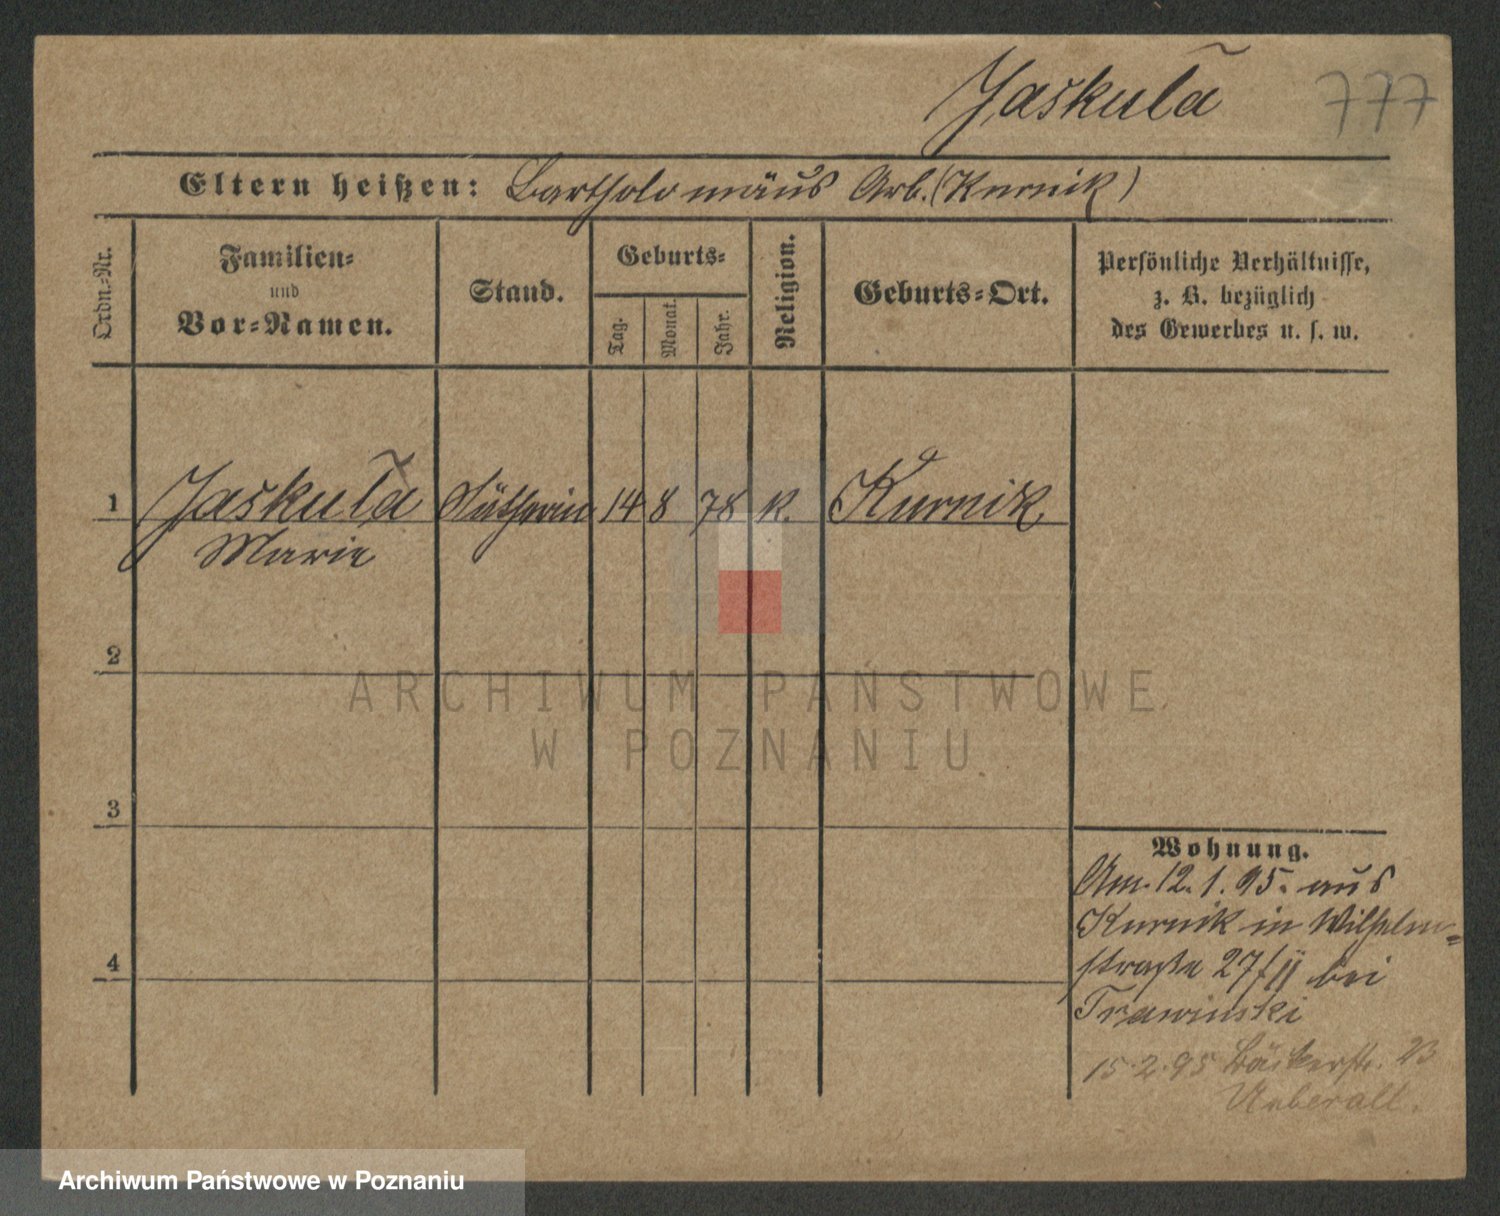 Jaskuła
777
Eltern heißen: Bartholomäus Arb. (Kurnik)
Ordn.-Nr.
Familien-
und
Vor-Namen.
Stand.
Geburts-
Tag.
Monat.
Jahr.
Religion.
Geburts-Ort.
Persönliche Verhältnisse,
z. B. bezüglich
des Gewerbes u. s. w.
1 Jaskuła 14 8 78 K. Kurnik
Marie
2
3
4
Wohnung.
Am 12. 1. 95. aus
Kurnik in Wilhelm-
straße 27/II bei
Trawinski
15.2.95 Bäckerstr. 23
Ueberall.
ARCHIWUM PAŃSTWOWE
W POZNANIU
Archiwum Państwowe w Poznaniu